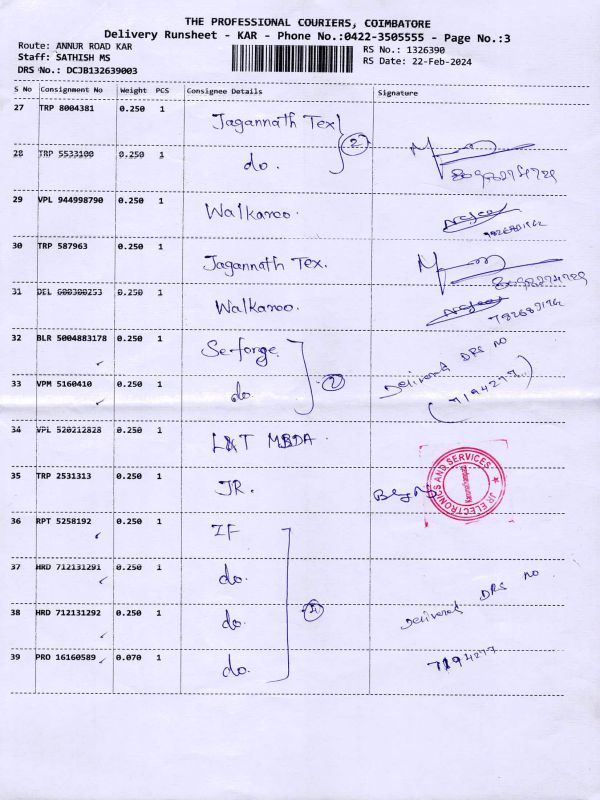 THE PROFESSIONAL COURIERS, COIMBATORE
Delivery Runsheet - KAR - Phone No.:0422-3505555 - Page No.:3
Route: ANNUR ROAD KAR
Staff: SATHISH MS
DRS No.: DCJB132639003
RS No.: 1326390
RS Date: 22-Feb-2024
S No Consignment No Weight PCS Consignee Details Signature
27 TRP 8004381 0.250 1 Jagannath Tex
28 TRP 5533100 0.250 1 do. 2
29 VPL 944998790 0.250 1 Walkaroo.
30 TRP 587963 0.250 1 Jagannath Tex.
31 DEL 600300253 0.250 1 Walkaroo.
32 BLR 5004883178 0.250 1 Se-forge. Delivered DRS no
33 VPM 5160410 0.250 1 do. 2 (7194277)
34 VPL 520212828 0.250 1 L&T MBDA.
35 TRP 2531313 0.250 1 JR. JR ELECTRONICS AND SERVICES
36 RPT 5258192 0.250 1 IF
37 HRD 712131291 0.250 1 do.
38 HRD 712131292 0.250 1 do. 4 Delivered DRS no
39 PRO 16160589 0.070 1 do. 7194277